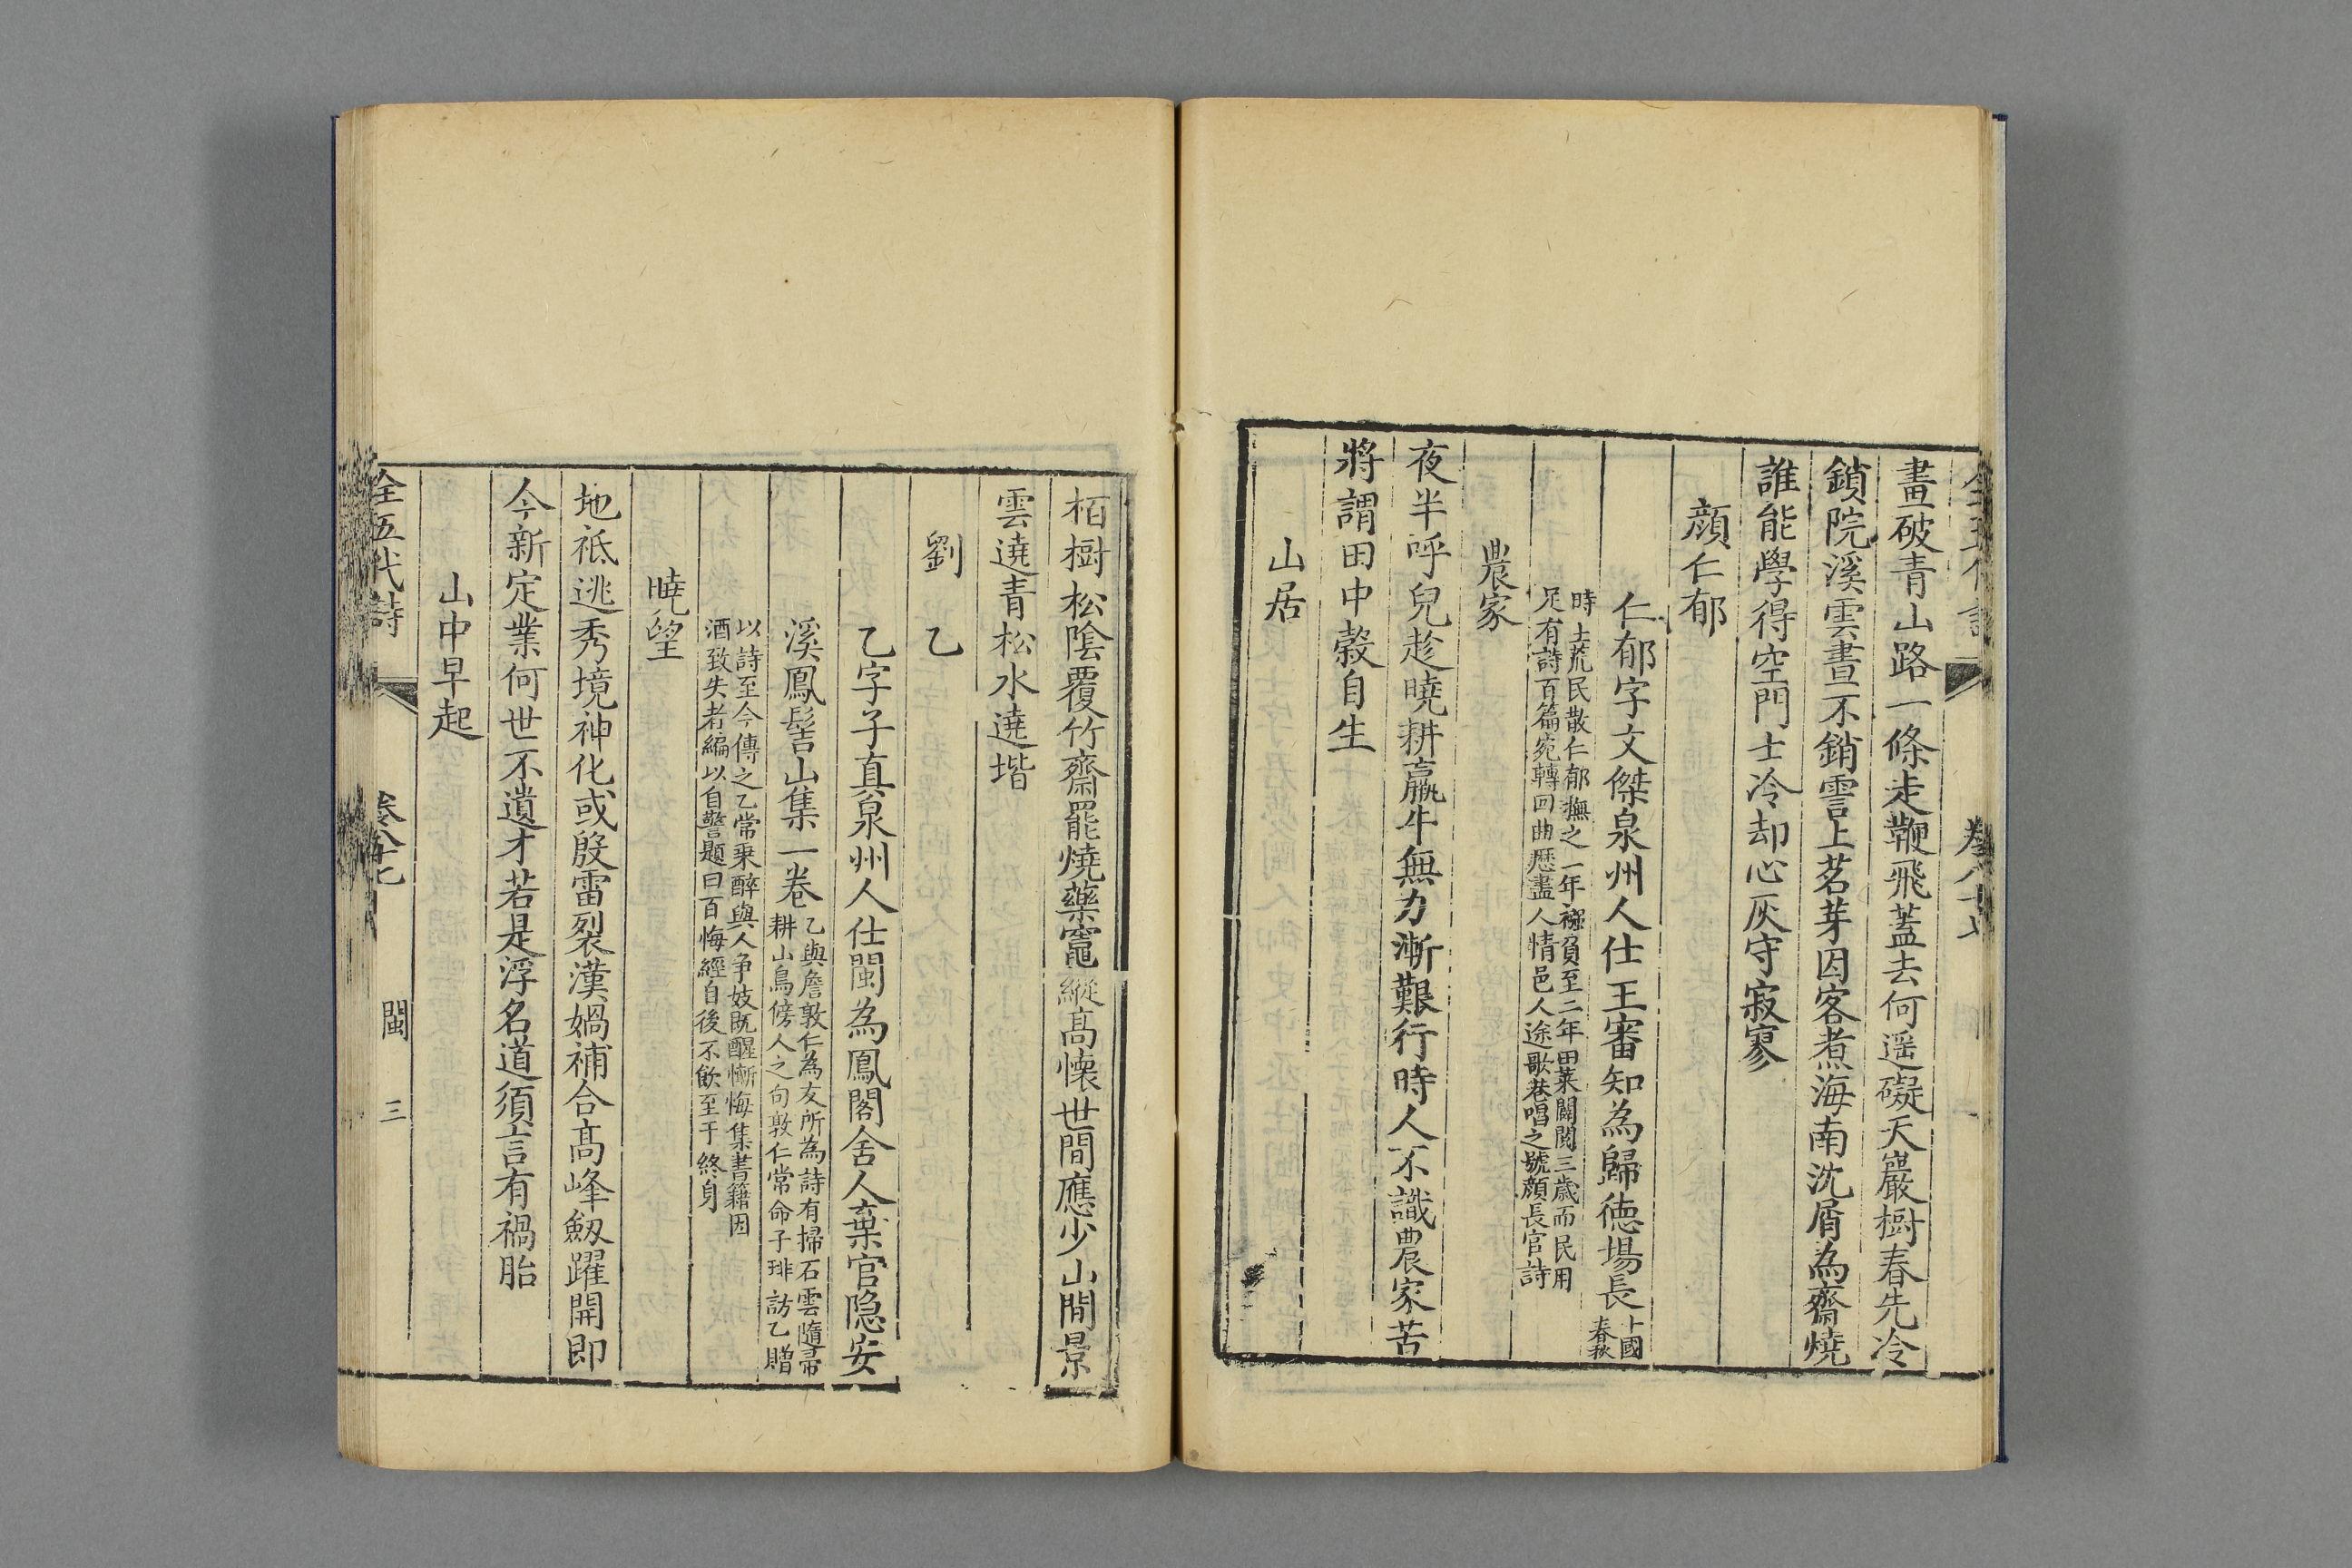 畫破青山路一條走鞭飛蓋去何遥礙天巖樹春先冷
鎖院溪雲晝不銷雲上茗芽因客煮海南沈屑為齋燒
誰能學得空門士冷却心灰守寂寥
顔仁郁
仁郁字文傑泉州人仕王審知為歸德場長十國春秋
時土荒民散仁郁撫之一年襁負至二年田萊闢閱三歳而民用
足有詩百篇宛轉回曲歴盡人情邑人途歌巷唱之號顔長官詩
農家
夜半呼兒趁曉耕羸牛無力漸艱行時人不識農家苦
將謂田中穀自生
山居
栢樹松陰覆竹齋罷燒藥竈縱高懷世間應少山間景
雲遶青松水遶堦
劉乙
乙字子真泉州人仕閩為鳳閣舍人棄官隐安
溪鳳髻山集一卷乙與詹敦仁為友所為詩有掃石雲隨帚
耕山鳥傍人之句敦仁常命子琲訪乙贈
以詩至今傳之乙常乗醉與人争妓既醒慚悔集書籍因
酒致失者編以自警題曰百悔經自後不飲至于終身
曉望
地祇逃秀境神化或殷雷裂漢媧補合髙峰劔躍開即
今新定業何世不遺才若是浮名道須言有禍胎
山中早起
全五代詩 卷八十七 閩 三